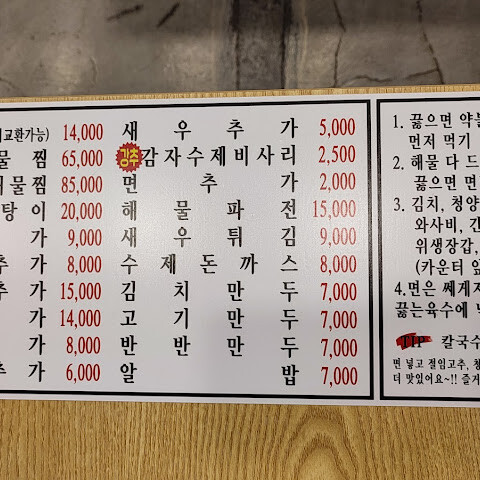 교환가능) 14,000
물찜 65,000
물찜 85,000
탕이 20,000
가 9,000
추가 8,000
추가 15,000
가 14,000
가 8,000
추가 6,000
새우추가 5,000
강추 감자수제비사리 2,500
면추가 2,000
해물파전 15,000
새우튀김 9,000
수제돈까스 8,000
김치만두 7,000
고기만두 7,000
반반만두 7,000
알밥 7,000
1. 끓으면 약불
먼저 먹기
2. 해물 다 드
끓으면 면
3. 김치, 청양
와사비, 간
위생장갑,
(카운터 앞
4.면은 쎄게
끓는육수에
TIP 칼국수
면 넣고 절임고추, 청
더 맛있어요~!! 즐거